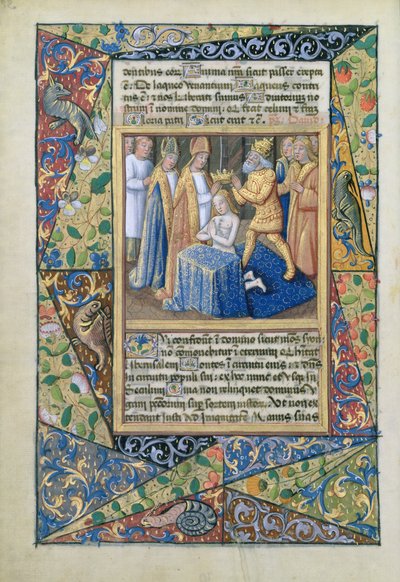 dentibus eor. Anima nra sicut passer erepta
e. De laqueo venantium. Laqueus contri
tus e. et nos liberati sumus. Adiutorium no
strum i nomine domini. Qui fecit celum et terram
Gloria patri Sicut erat et c. David
Qui confidunt i domino sicut mos syon
no comovebitur i eternum qui habitat
i iherusalem Montes i circuitu eius et dns
in circuitu populi sui ex hoc nunc et usque in
seculum. Quia non relinquet dominus vir
gam pccorum sup sortem iustor. Ut non ex
tendant iusti ad iniquitatem Manus suas